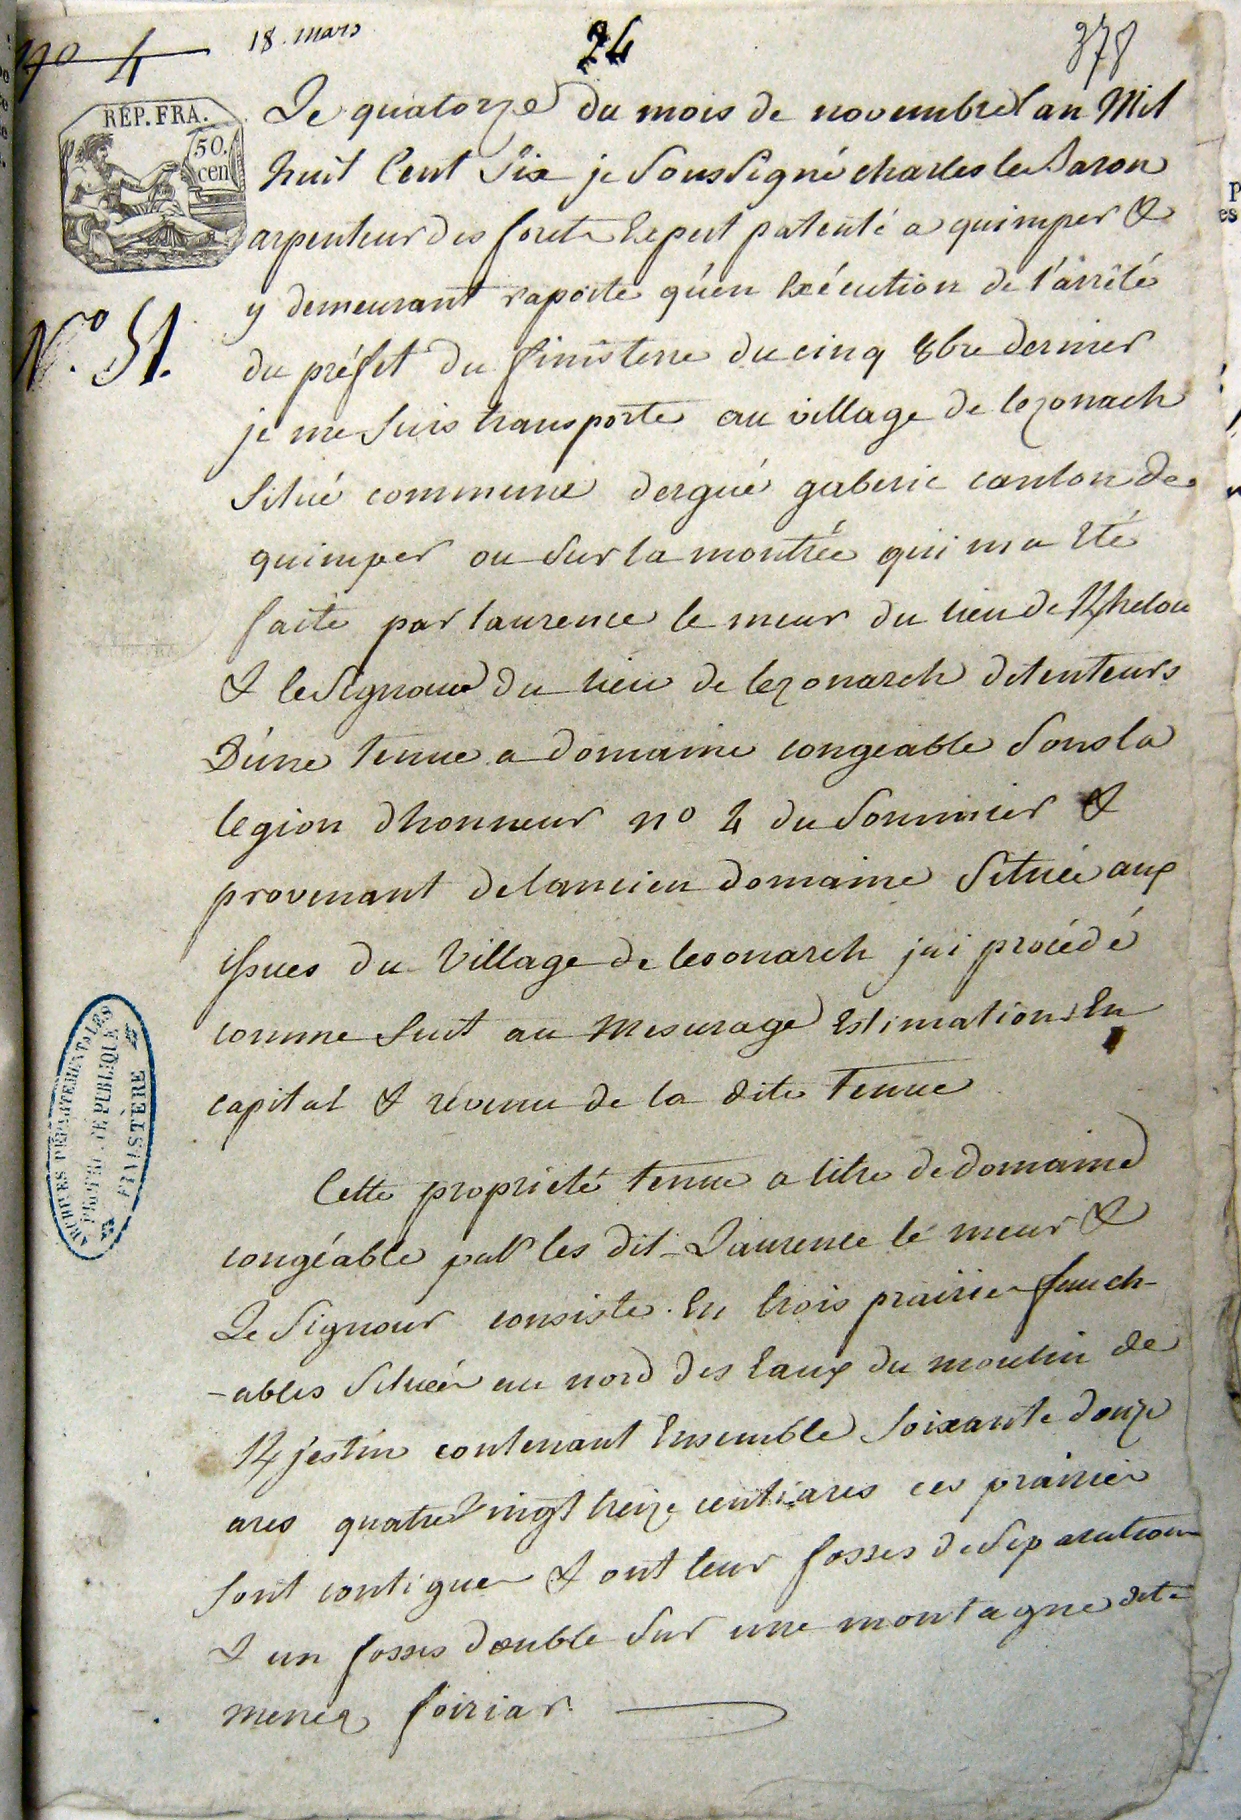 no 4
18. mars
24
378
REP. FRA.
50.
cen
N.o 51.
Le quatorze du mois de novembre l an Mil
huit Cent Six je Soussigné charles le Baron
arpenteur des forets Expert patenté a quimper &
y demeurant raporte qu'en Exécution de l'arrêté
du préfet du finisterre du cinq 8bre dernier
je me suis transporté au village de lezonach
Situé commune dergué gaberic canton de
quimper ou sur la montrée qui m a Eté
faite par laurence le meur du lieu de Khelou
& le Signour du lieu de lezonarch detenteurs
D'une tenue a domaine congeable Sous la
legion dhonneur no 4 du Sommier &
provenant de lancien domaine Située aux
issues du Village de lesonarch jai procédé
comme Suit au Mesurage Estimation En
capital & revenu de la dite tenue
Cette proprieté tenue a titre de domaine
congéable par les dit Laurence le meur &
Le Signour consiste En trois prairies fauch-
-ables Situées au nord des Eaux du moulin de
Kjestin contenant Ensemble Soixante douze
ares quatre Vingt treize centiares ces prairies
Sont contigues & ont leur fosses de Separation
& un fosses double Sur une montagne dite
menez foiriar.
ARCHIVES DÉPARTEMENTALES
PROPRIÉTÉ PUBLIQUE
FINISTÈRE